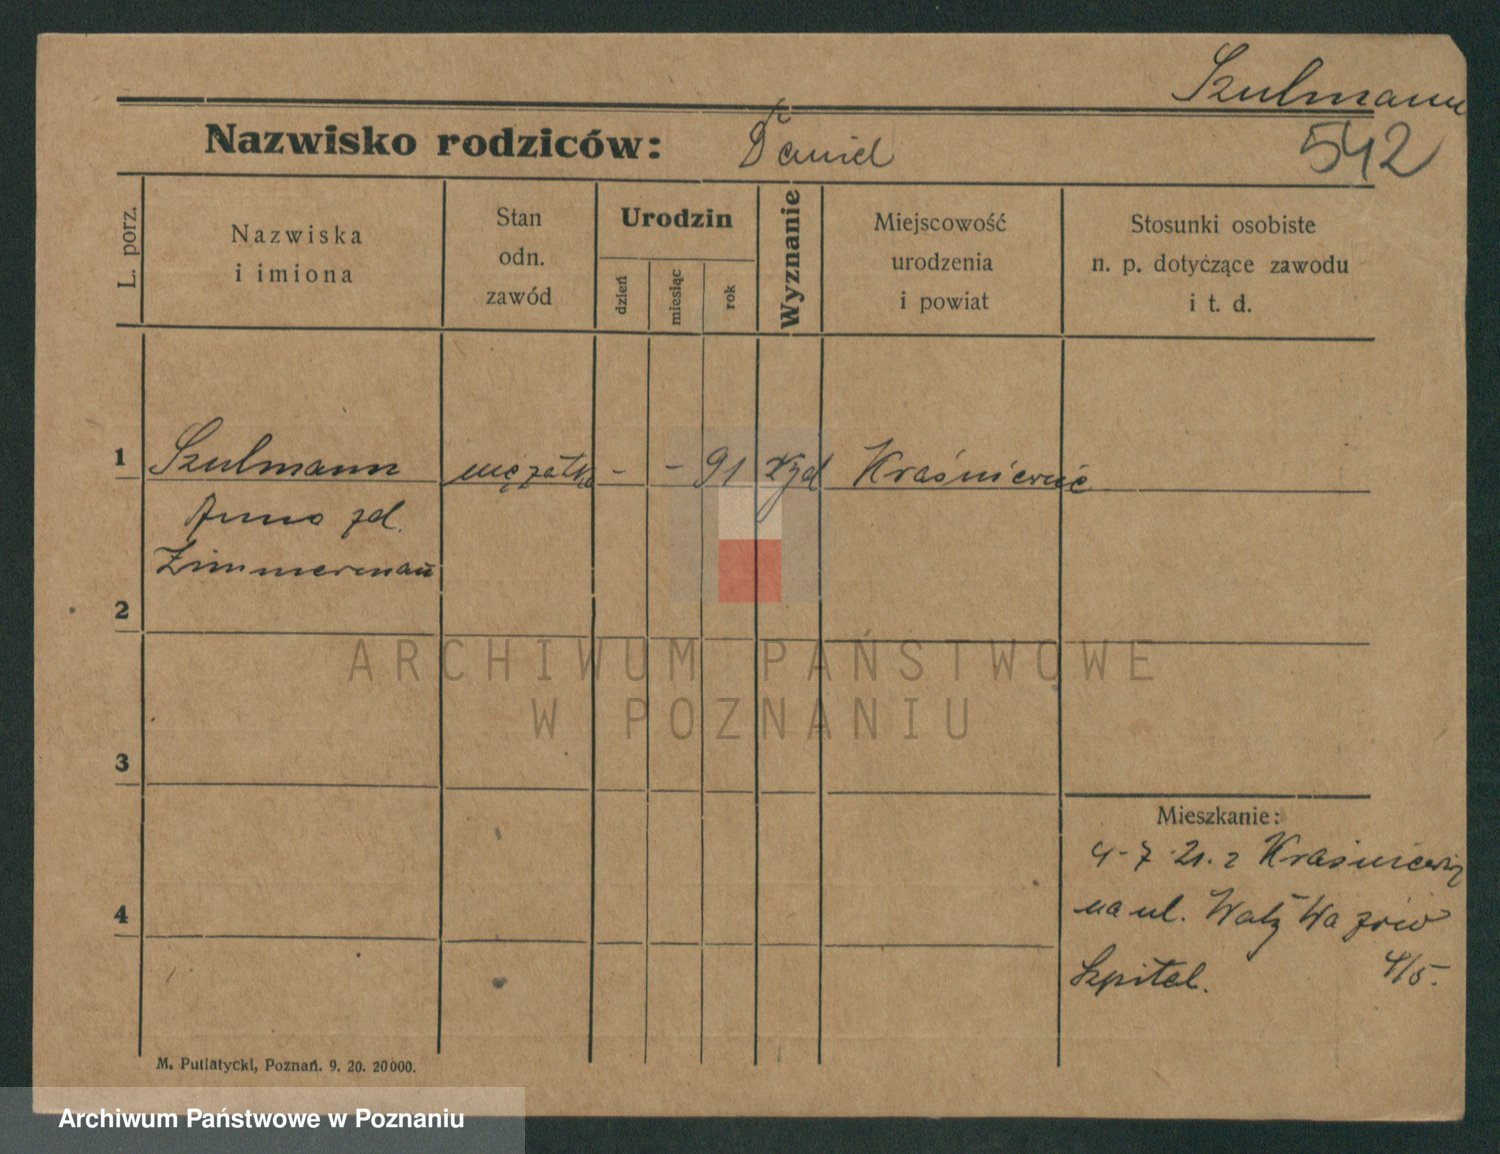 Szulmann
542
Nazwisko rodziców: Daniel
L. porz.
Nazwiska
i imiona
Stan
odn.
zawód
Urodzin
dzień
miesiąc
rok
Wyznanie
Miejscowość
urodzenia
i powiat
Stosunki osobiste
n. p. dotyczące zawodu
i t. d.
1 Szulmann mężatka - - 91 żyd Kraśniewic
Anna zd.
Zimmerman
2
ARCHIWUM PAŃSTWOWE
W POZNANIU
3
Mieszkanie:
4-7-21. z
na ul.
4
Szpital. 4/5.
M. Putiatycki, Poznań. 9. 20. 20000.
Archiwum Państwowe w Poznaniu